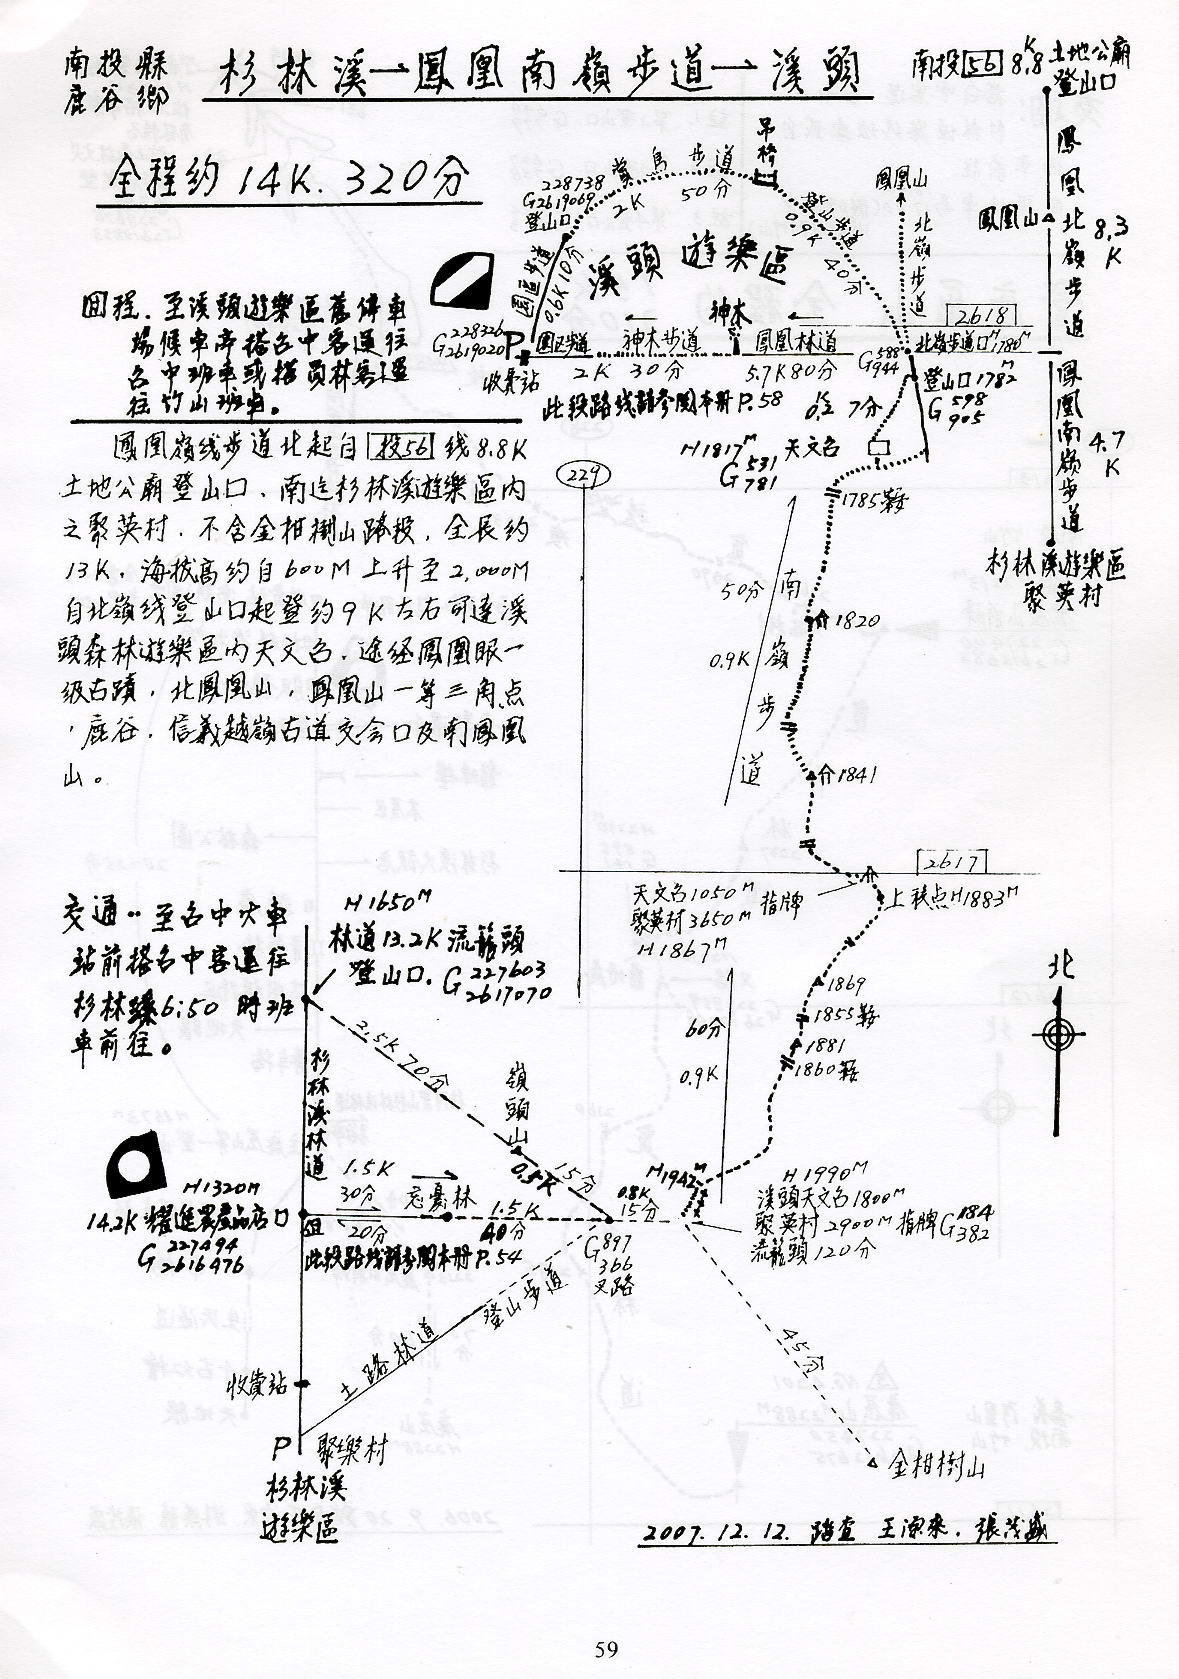 南投縣
鹿谷鄉
杉林溪→鳳凰南嶺步道→溪頭
南投56 8.8K 土地公廟
登山口
全程約14K. 320分
鳳凰北嶺步道
鳳凰山
8.3K
鳳凰南嶺步道
4.7K
杉林溪遊樂區
聚英村
吊橋
步道
50分
2K
228738
G2619069
登山口
登山步道
0.9K 40分
鳳凰山
北嶺步道
園區步道
0.6K 10分
溪頭遊樂區
神木
2618
228326
G2619020
P
園區步道
神木步道
鳳凰林道
588
G944
北嶺步道口1786M
收費站
2K 30分
5.7K 80分
登山口1782M
G598
905
此段路线請參閱本冊P.58
0.2K 7分
回程. 至溪頭遊樂區舊停車
場候車亭搭台中客運往
台中班車或搭員林客運
往竹山班車。
鳳凰嶺线步道北起自投56线8.8K
土地公廟登山口、南迄杉林溪遊樂區內
之聚英村.不含金柑樹山路段.全長約
13K.海拔高約自600M上升至2,000M
自北嶺线登山口起登約9K左右可達溪
頭森林遊樂區內天文台.途経鳳凰眼一
級古蹟,北鳳凰山,鳳凰山一等三角点
,鹿谷.信義越嶺古道交会口及南鳳凰
山。
H1817M 天文台
G531
781
229
1785鞍
50分
0.9K
南嶺步道
1820
1841
2617
天文台1050M
聚英村3650M 指牌
H1867M
上稜点H1883M
北
交通..至台中火車
站前搭台中客運往
杉林溪6:50時班
車前往。
H1650M
林道13.2K 流籠頭
登山口. G227603
2617070
1869
1855鞍
1881
1860鞍
60分
0.9K
杉林溪林道
2.5K 70分
嶺頭山
0.5K 15分
H1942M
H1990M
溪頭天文台1800M
聚英村2900M 指牌G184
382
流籠頭120分
H1320M
14.2K
農産品店口
G227494
2616476
1.5K
30分
20分
忘憂林
1.5K
40分
0.8K
15分
此段路线請參閱本冊P.54
G897
366
叉路
登山步道
土路林道
45分
收費站
P 聚樂村
杉林溪
遊樂區
金柑樹山
2007.12.12. 踏查 王源來.張茂盛
59